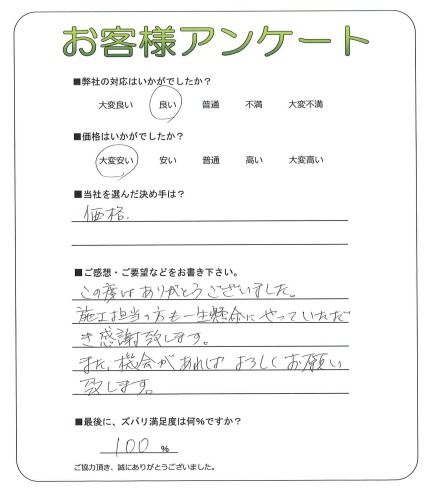 お客様アンケート
■弊社の対応はいかがでしたか？
大変良い 良い 普通 不満 大変不満
■価格はいかがでしたか？
大変安い 安い 普通 高い 大変高い
■当社を選んだ決め手は？
価格.
■ご感想・ご要望などをお書き下さい。
この度はありがとうございました。
施工担当の方も一生懸命にやっていただ
き感謝致します。
また、機会があればよろしくお願い
致します。
■最後に、ズバリ満足度は何%ですか？
100 %
ご協力頂き、誠にありがとうございました。